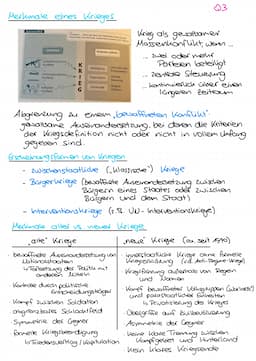 Q3
Merkmale eines Krieges
Krieg als gewaltsamer
Massenkonflikt, wenn ...
... zwei oder mehr
Parteien beteiligt
... zentrale Steuerung
... kontinuierlich über einen
längeren Zeitraum
KRIEG
Abgrenzung zu einem „bewaffneten Konflikt"
gewaltsame Auseinandersetzung, bei denen die Kriterien
der Kriegsdefinition nicht oder nicht in vollem Umfang
gegeben sind.
Erscheinungsformen von Kriegen
- zwischenstaatliche („klassische") Kriege
- Bürgerkriege (bewaffnete Auseinandersetzung zwischen
Bürgern eines Staates oder zwischen
Bürgern und dem Staat)
- Interventionskriege (z.B. UN-Interventionskriege)
Merkmale alter vs. neuer Kriege
„alte" Kriege
„neue" Kriege
bewaffnete Auseinandersetzung von
Nationalstaaten
↳ Fortsetzung der Politik mit
anderen Mitteln
Kontrolle durch politische
Entscheidungsträger
Kampf zwischen Soldaten
abgrenzbares Schlachtfeld
Symmetrie der Gegner
formelle Kriegsbeendigung
↳ Friedensvertrag / Kapitulation
innerstaatliche Kriege ohne formelle
Kriegserklärung
Kriegsführung außerhalb von Regeln
und Normen
Kampf bewaffneter Volksgruppen
und parastaatlicher Einheiten
↳ Privatisierung des Krieges
Übergriffe auf Zivilbevölkerung
Asymmetrie der Gegner
keine klare Trennung zwischen
Kampfgebiet und Hinterland
kein klares Kriegsende